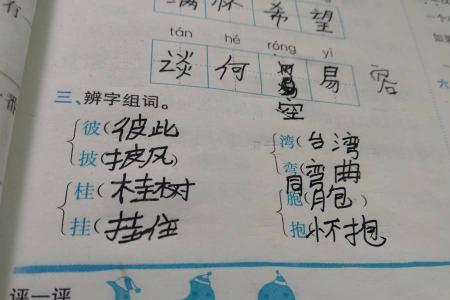 有一
满怀希望
一个
tán hé róng yì
谈何易容
三、辨字组词。
彼(彼此
湾(台湾
披(披风)
弯(弯曲
桂(桂树
胞(同胞)
挂(挂住
抱(怀抱
评一评